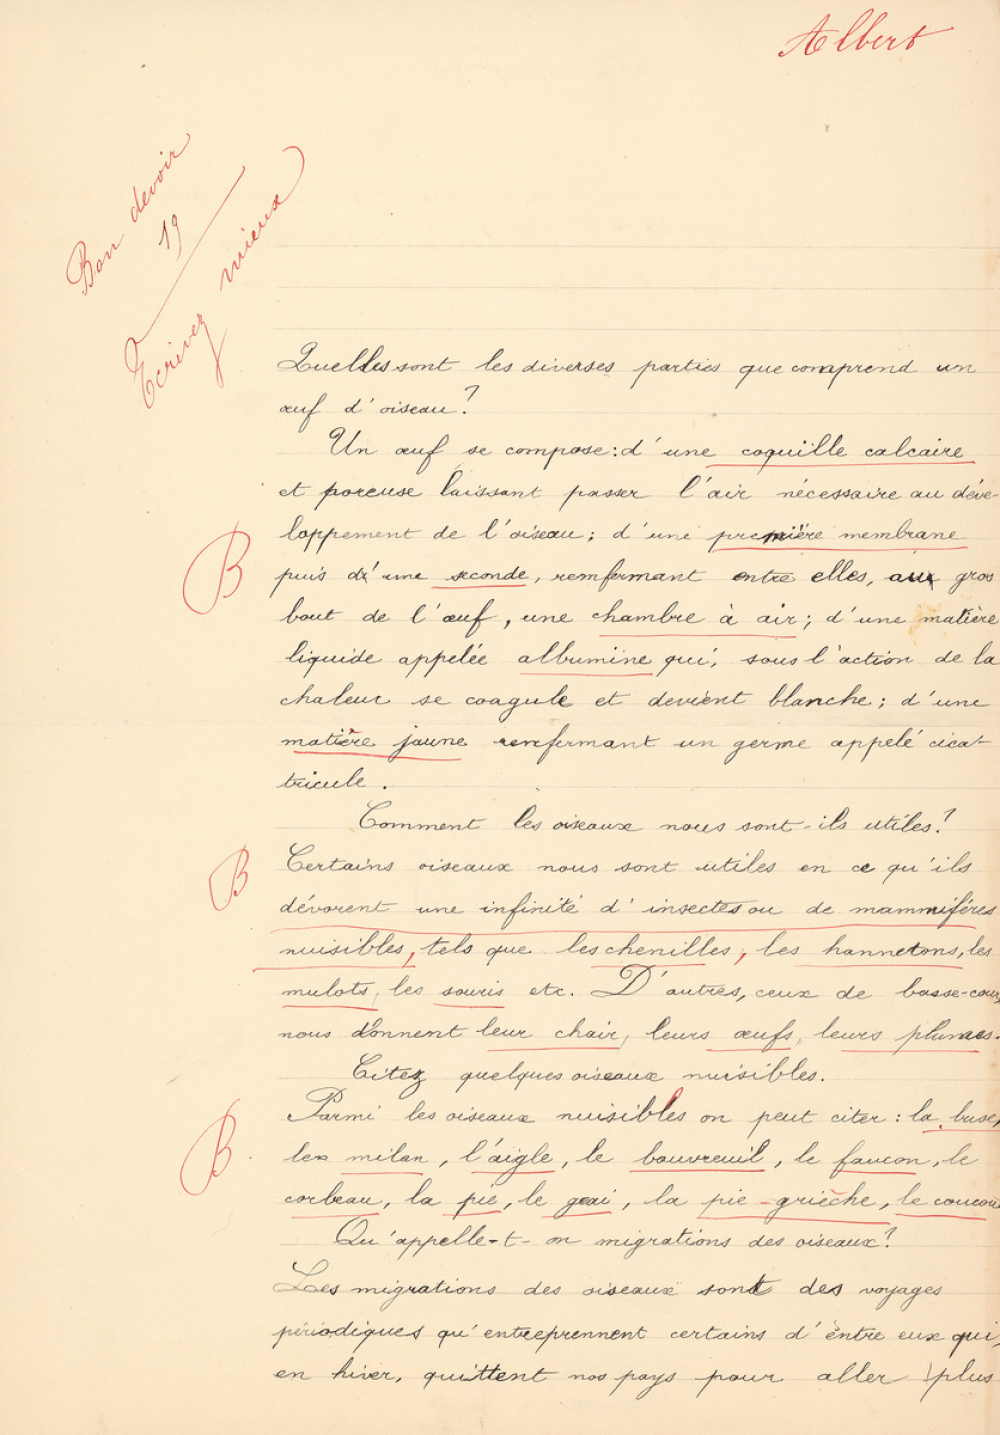 Albert
Bon devoir
19
Écrivez mieux
Quelles sont les diverses parties que comprend un
œuf d'oiseau?
Un œuf se compose: d'une coquille calcaire
et poreuse laissant passer l'air nécessaire au déve-
loppement de l'oiseau; d'une première membrane
puis d'une seconde, remfermant entre elles, au gros
bout de l'œuf, une chambre à air; d'une matière
liquide appelée albumine qui, sous l'action de la
chaleur se coagule et devient blanche; d'une
matière jaune renfermant un germe appelé cica-
tricule.
Comment les oiseaux nous sont-ils utiles?
B
Certains oiseaux nous sont utiles en ce qu'ils
dévorent une infinité d'insectes ou de mammifères
nuisibles, tels que les chenilles, les hannetons, les
mulots, les souris etc. D'autres, ceux de basse-cour,
nous donnent leur chair, leurs œufs, leurs plumes.
Citez quelques oiseaux nuisibles.
B
Parmi les oiseaux nuisibles on peut citer: la buse,
le milan, l'aigle, le bouvreuil, le faucon, le
B
corbeau, la pie, le geai, la pie-grièche, le coucou
Qu'appelle-t-on migrations des oiseaux?
Les migrations des oiseaux sont des voyages
périodiques qu'entreprennent certains d'entre eux qui,
en hiver, quittent nos pays pour aller plus